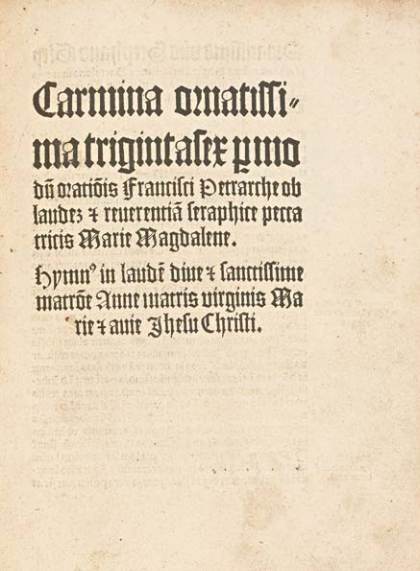 Carmina ornatissi⸗
ma trigintasex ꝑ mo
dū oratiōis Francisci Petrarche ob
laudeꝫ ⁊ reuerentiā seraphice pecca
tricis Marie Magdalene.
Hymnꝰ in laudē diue ⁊ sanctissime
matrōe Anne matris virginis Ma
rie ⁊ auie Jhesu Christi.